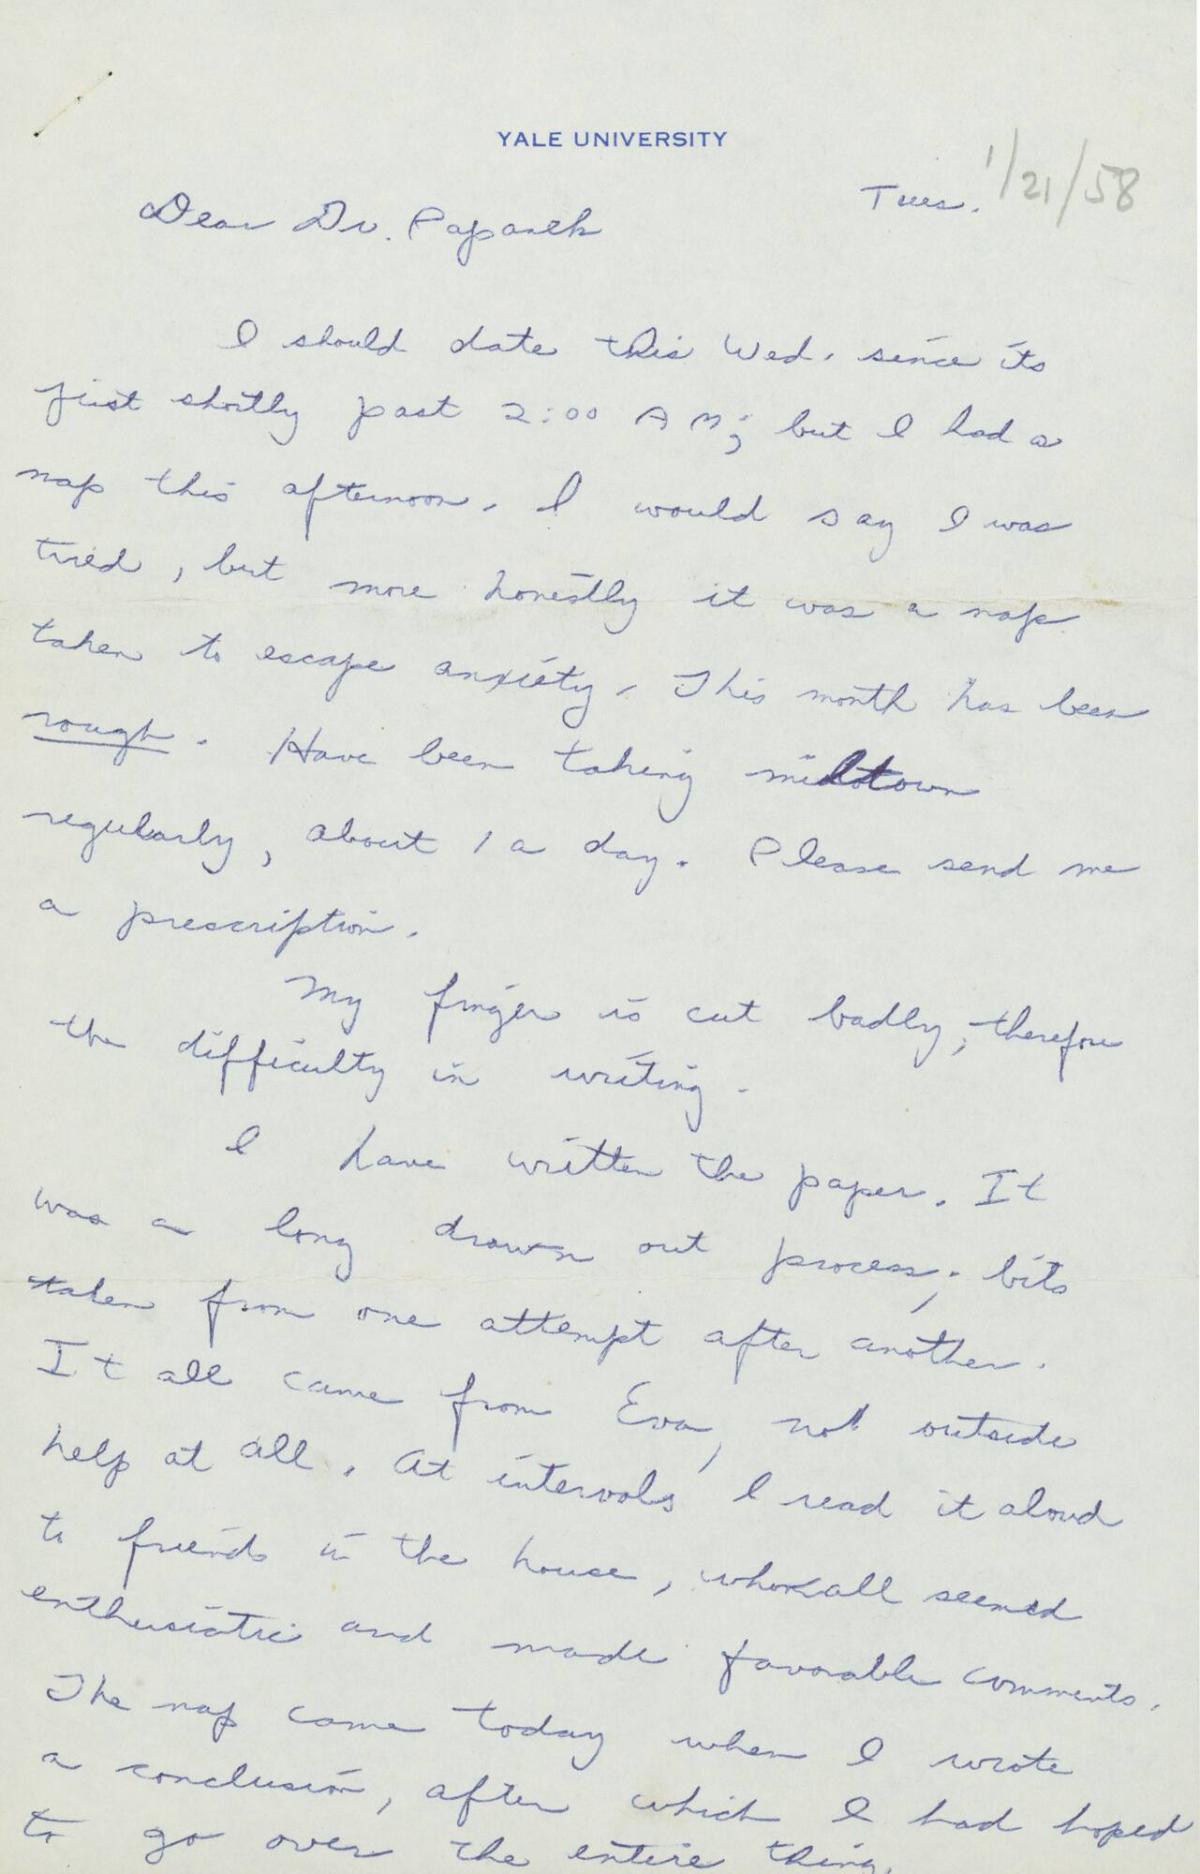 YALE UNIVERSITY
Tues. 1/21/58
Dear Dr. Papanek
I should date this Wed. since its
just shortly past 2:00 AM; but I had a
nap this afternoon. I would say I was
tired, but more honestly it was a nap
taken to escape anxiety. This month has been
rough. Have been taking miltown
regularly, about 1 a day. Please send me
a prescription.
My finger is cut badly; therefore
the difficulty in writing.
I have written the paper. It
was a long drawn out process; bits
taken from one attempt after another.
It all came from Eva, not outside
help at all. At intervals I read it aloud
to friends in the house, who all seemed
enthusiatic and made favorable comments.
The nap came today when I wrote
a conclusion, after which I had hoped
to go over the entire thing.